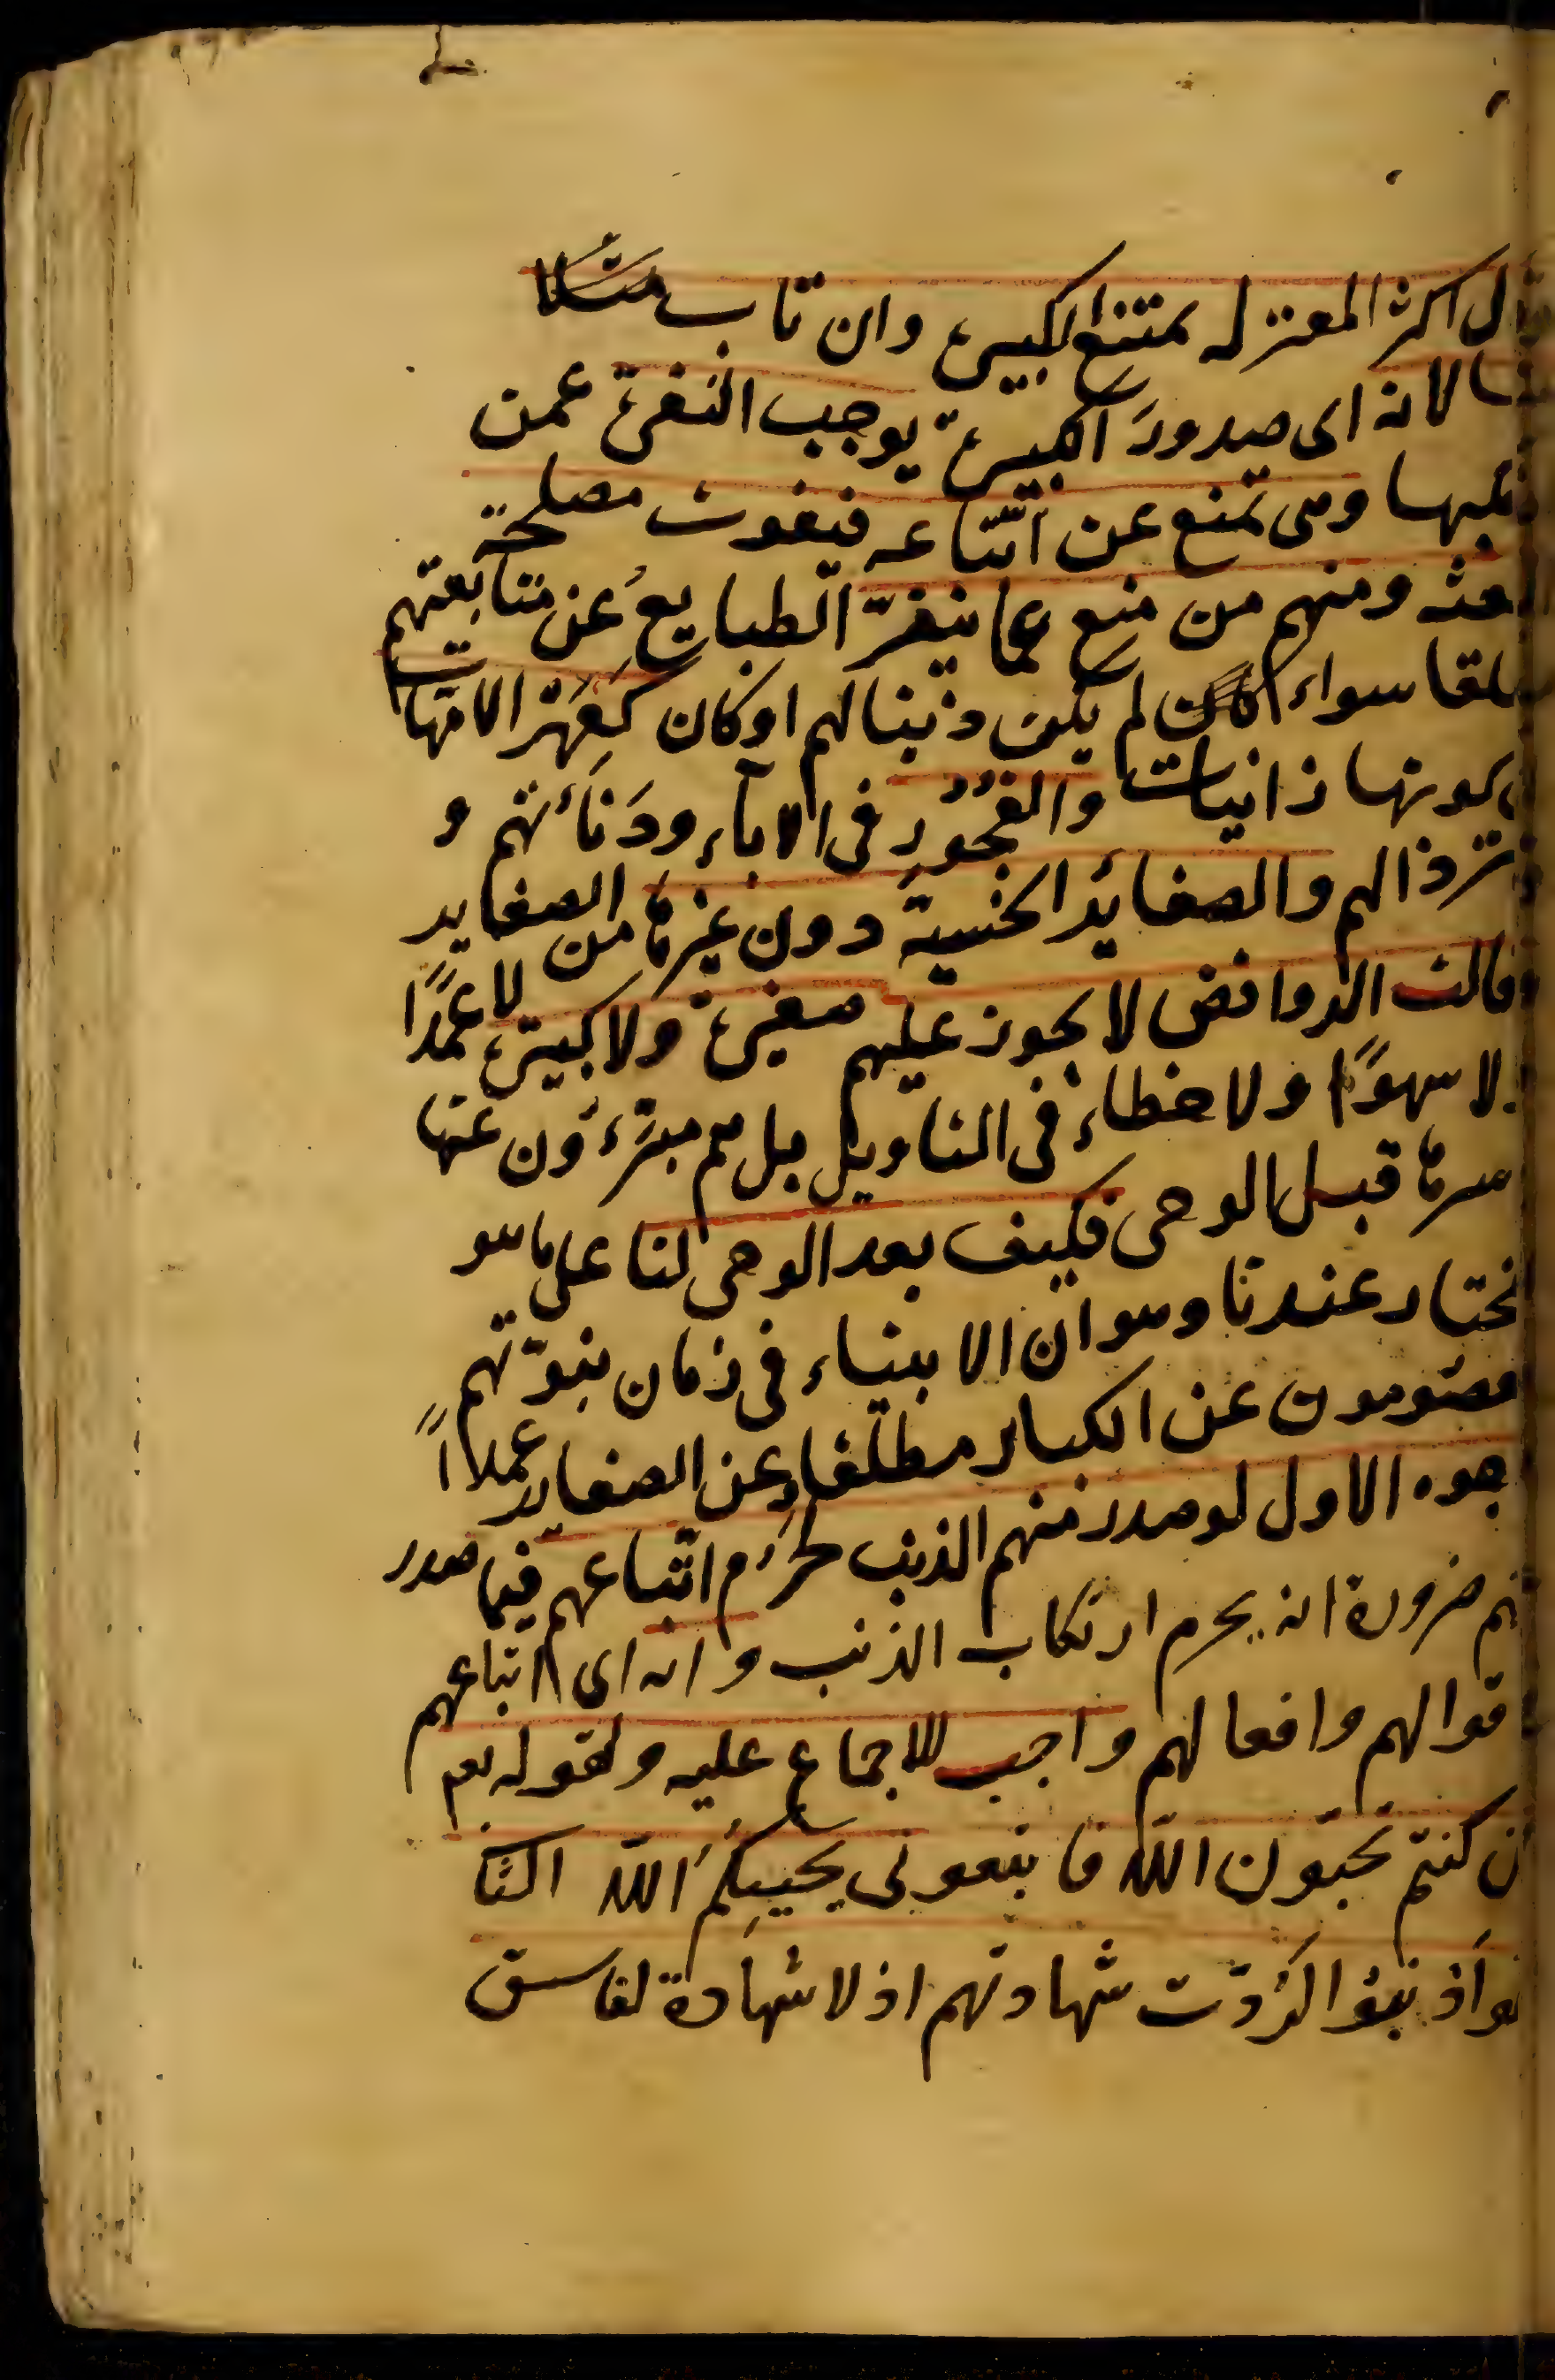 قال اكثر المعتزلة يمتنع الكبيرة وان تاب منها
لانه اى صدور الكبيرة يوجب النفرة عمن
ارتكبها وهى تمنع عن اتباعه فيفوت مصلحة
البعثة ومنهم من منع عما ينفر الطبايع عن متابعتهم
مطلقا سواء لم يكن ذنبا لهم او كان كعهر الامهات
اى كونها زانيات والفجور فى الاباء ودنائتهم و
استرذالهم والصغاير الخسيسة دون غيرها من الصغاير
وقالت الروافض لا يجوز عليهم صغيرة ولا كبيرة لا عمدًا
ولا سهوًا ولا خطاء فى التاويل بل هم مبرءون عنها
باسرها قبل الوحى فكيف بعد الوحى لنا على ما هو
المختار عندنا وهو ان الانبياء فى زمان نبوتهم
معصومون عن الكباير مطلقا وعن الصغاير عمدًا
وجوه الاول لو صدر منهم الذنب لحرم اتباعهم فيما صدر
عنهم ضرورة انه يحرم ارتكاب الذنب وانه اى اتباعهم
اقوالهم وافعالهم واجب للاجماع عليه ولقوله تعم
ان كنتم تحبون الله فاتبعونى يحببكم الله الثا
لو اذنبوا لردت شهادتهم اذ لا شهادة لفاسق